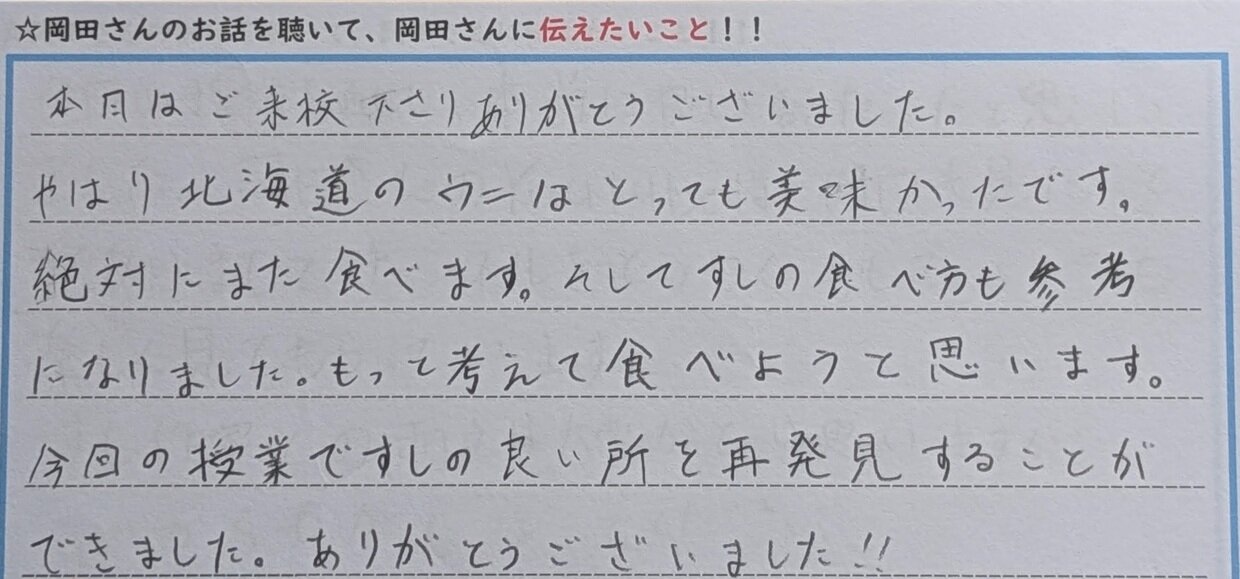 ☆岡田さんのお話を聴いて、岡田さんに伝えたいこと！！
本日はご来校下さりありがとうございました。
やはり北海道のウニはとっても美味かったです。
絶対にまた食べます。そしてすしの食べ方も参考
になりました。もっと考えて食べようと思います。
今回の授業ですしの良い所を再発見することが
できました。ありがとうございました!!